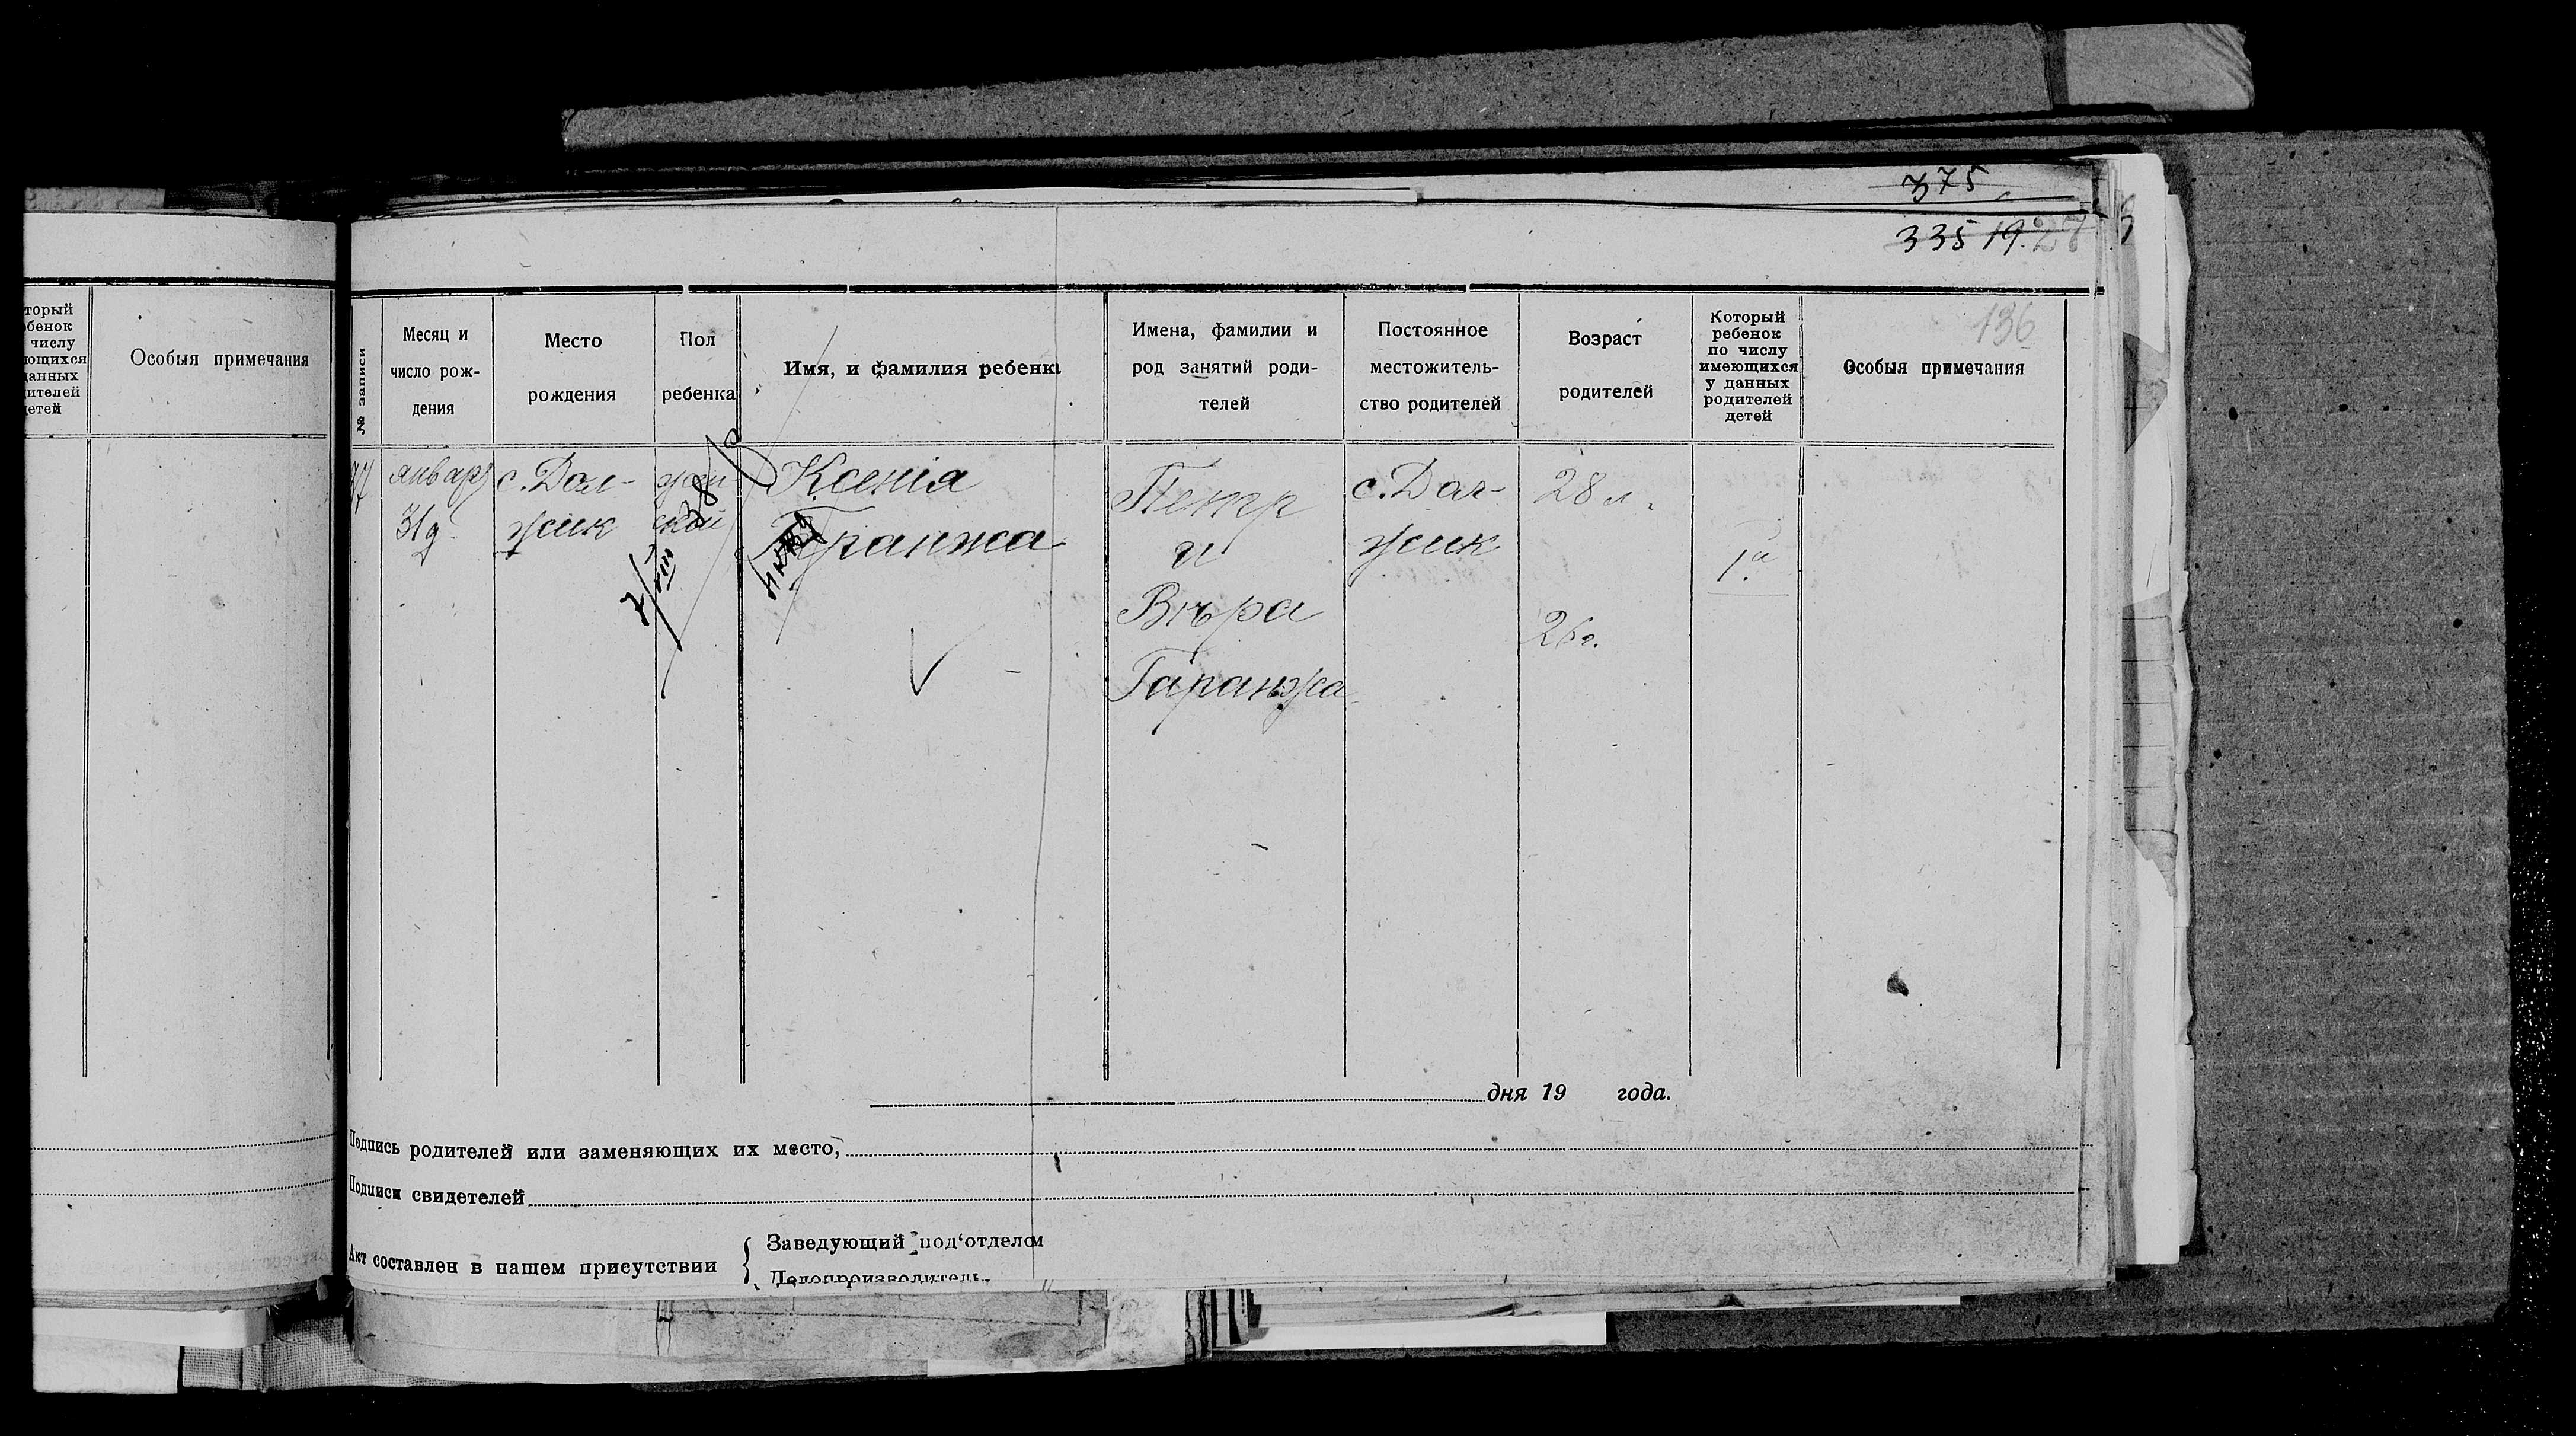 375
335 19.27
136
торый
бенок
числу
ющихся
данных
ителей
етей
Особыя примечания
№ записи
Месяц и
число рож-
дения
Место
рождения
Пол
ребенка
Имя, и фамилия ребенка
Имена, фамилии и
род занятий роди-
телей
Постоянное
местожитель-
ство родителей
Возраст
родителей
Который
ребенок
по числу
имеющихся
у данных
родителей
детей
Особыя примечания
январ
31 д
с. Дол-
жик
жен
ской
Ксенія
Гаранжа
Петр
и
Вѣра
Гаранжа
с. Дол-
жик
28 л.
26 г.
1й
дня 19 года.
Подпись родителей или заменяющих их место,
Подписи свидетелей
Акт составлен в нашем присутствии
Заведующий под‘отделом
Делопроизводитель